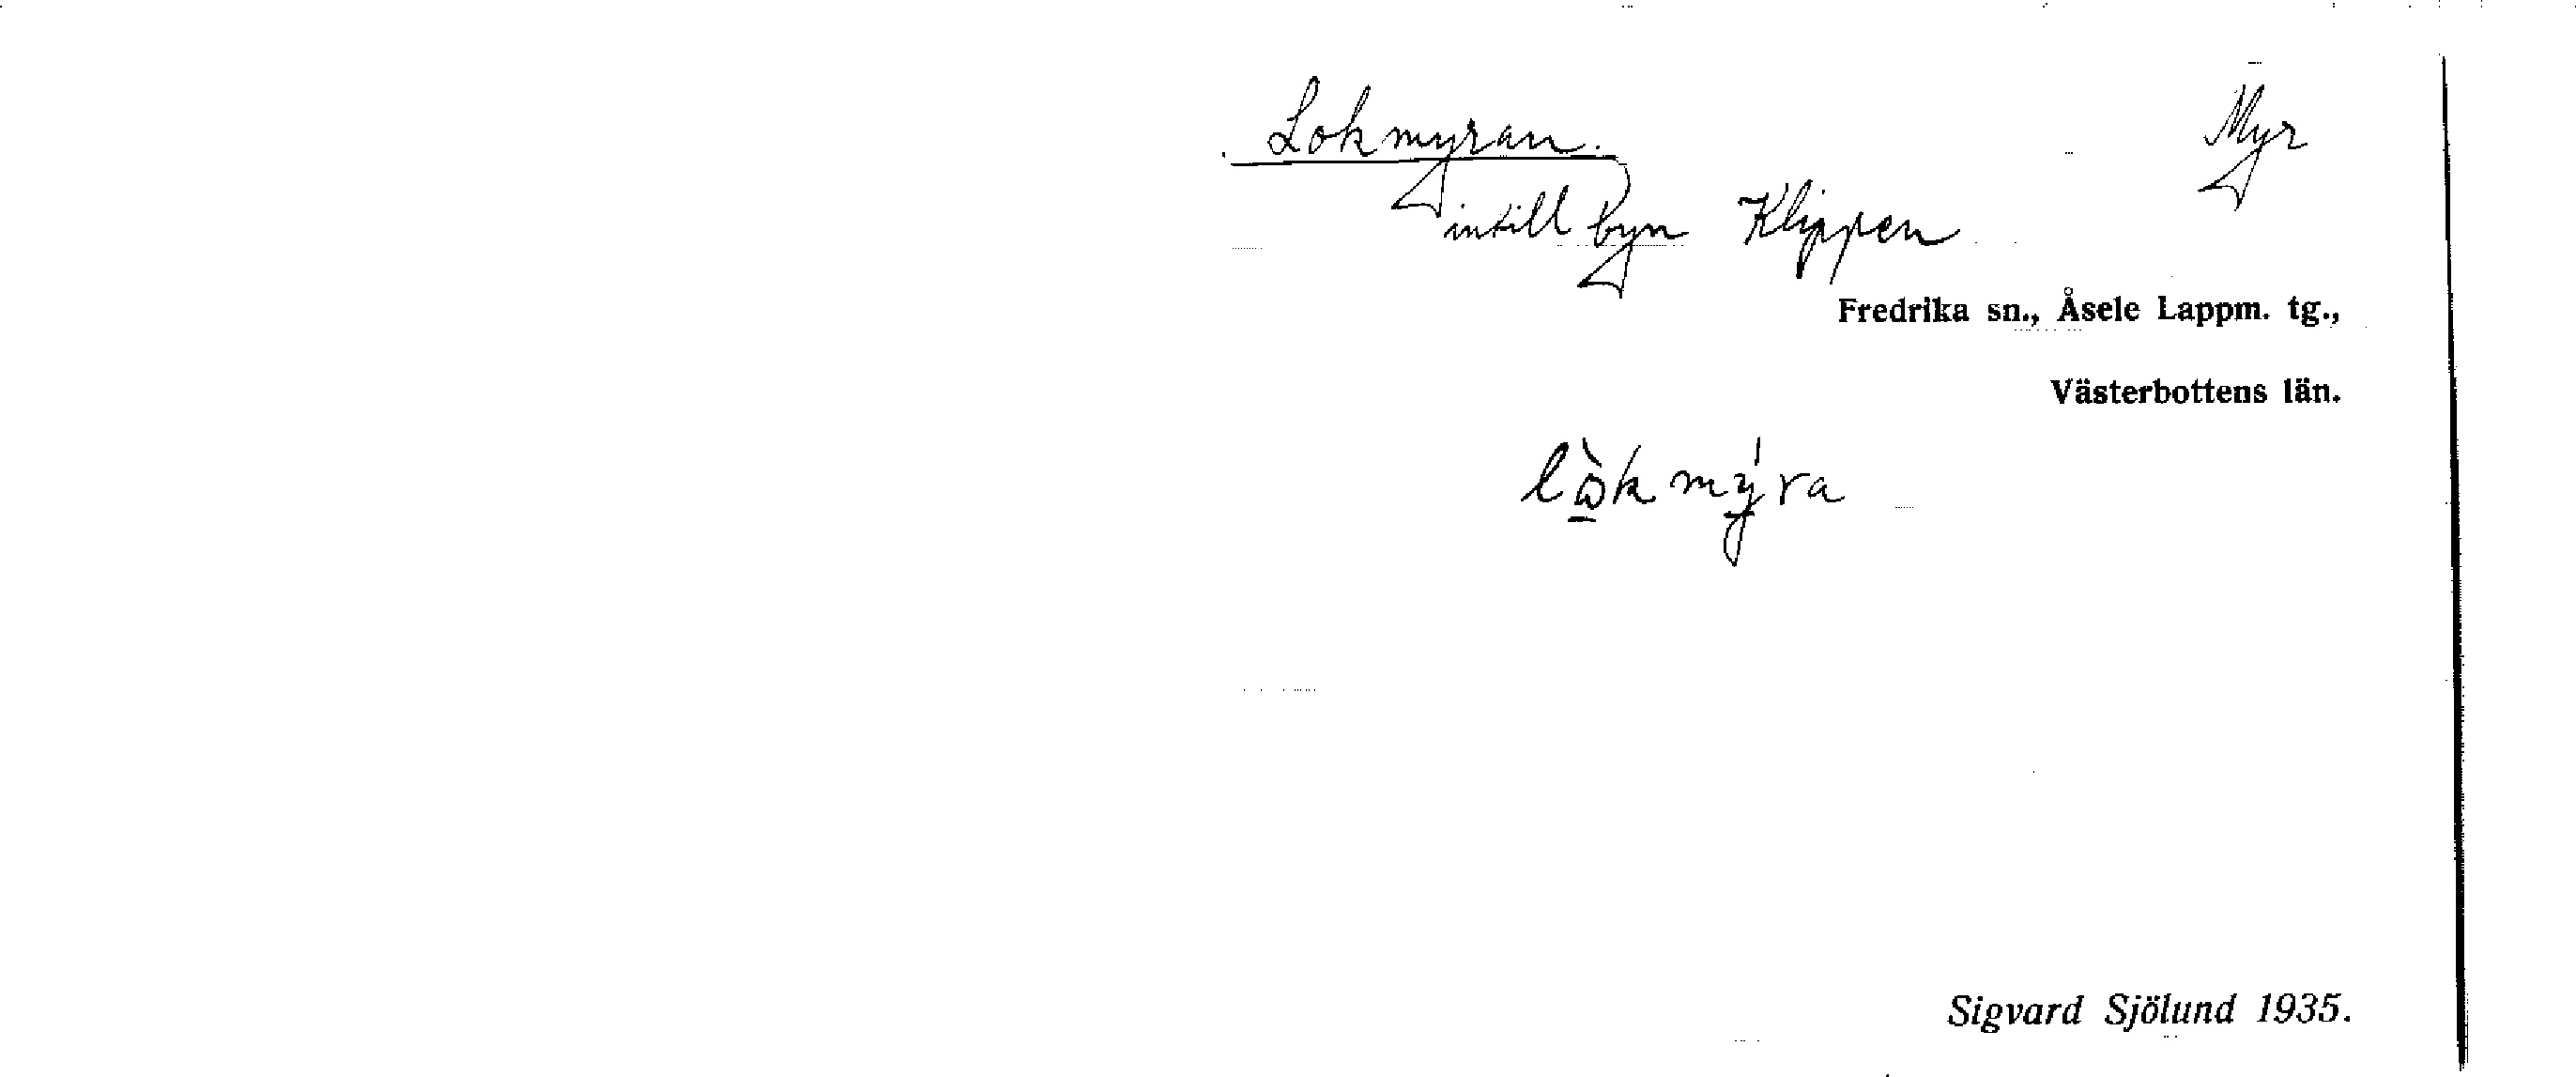 Lokmyran. Myr
intill byn Klippen
Fredrika sn., Åsele Lappm. tg.,
Västerbottens län.
lò̱kmýra
Sigvard Sjölund 1935.